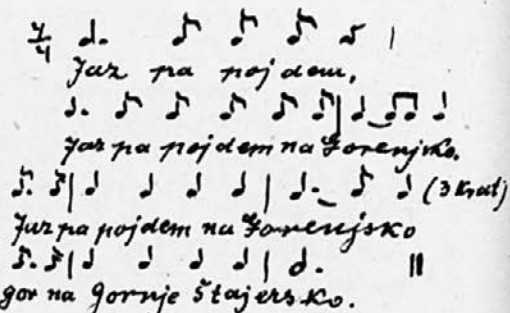 7/4
Jaz pa pojdem,
Jaz pa pojdem na Gorenjsko.
(3 krat)
Jaz pa pojdem na Gorenjsko
gor na gornje Štajersko.